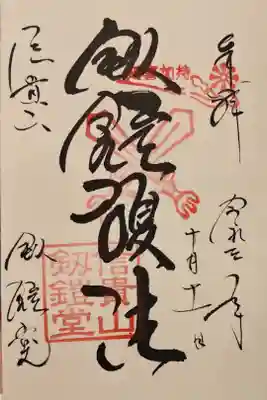 奉拝
令和年
十月十一日
剱鎧護法
信貴山
剱鎧堂
信貴山
剱鎧堂